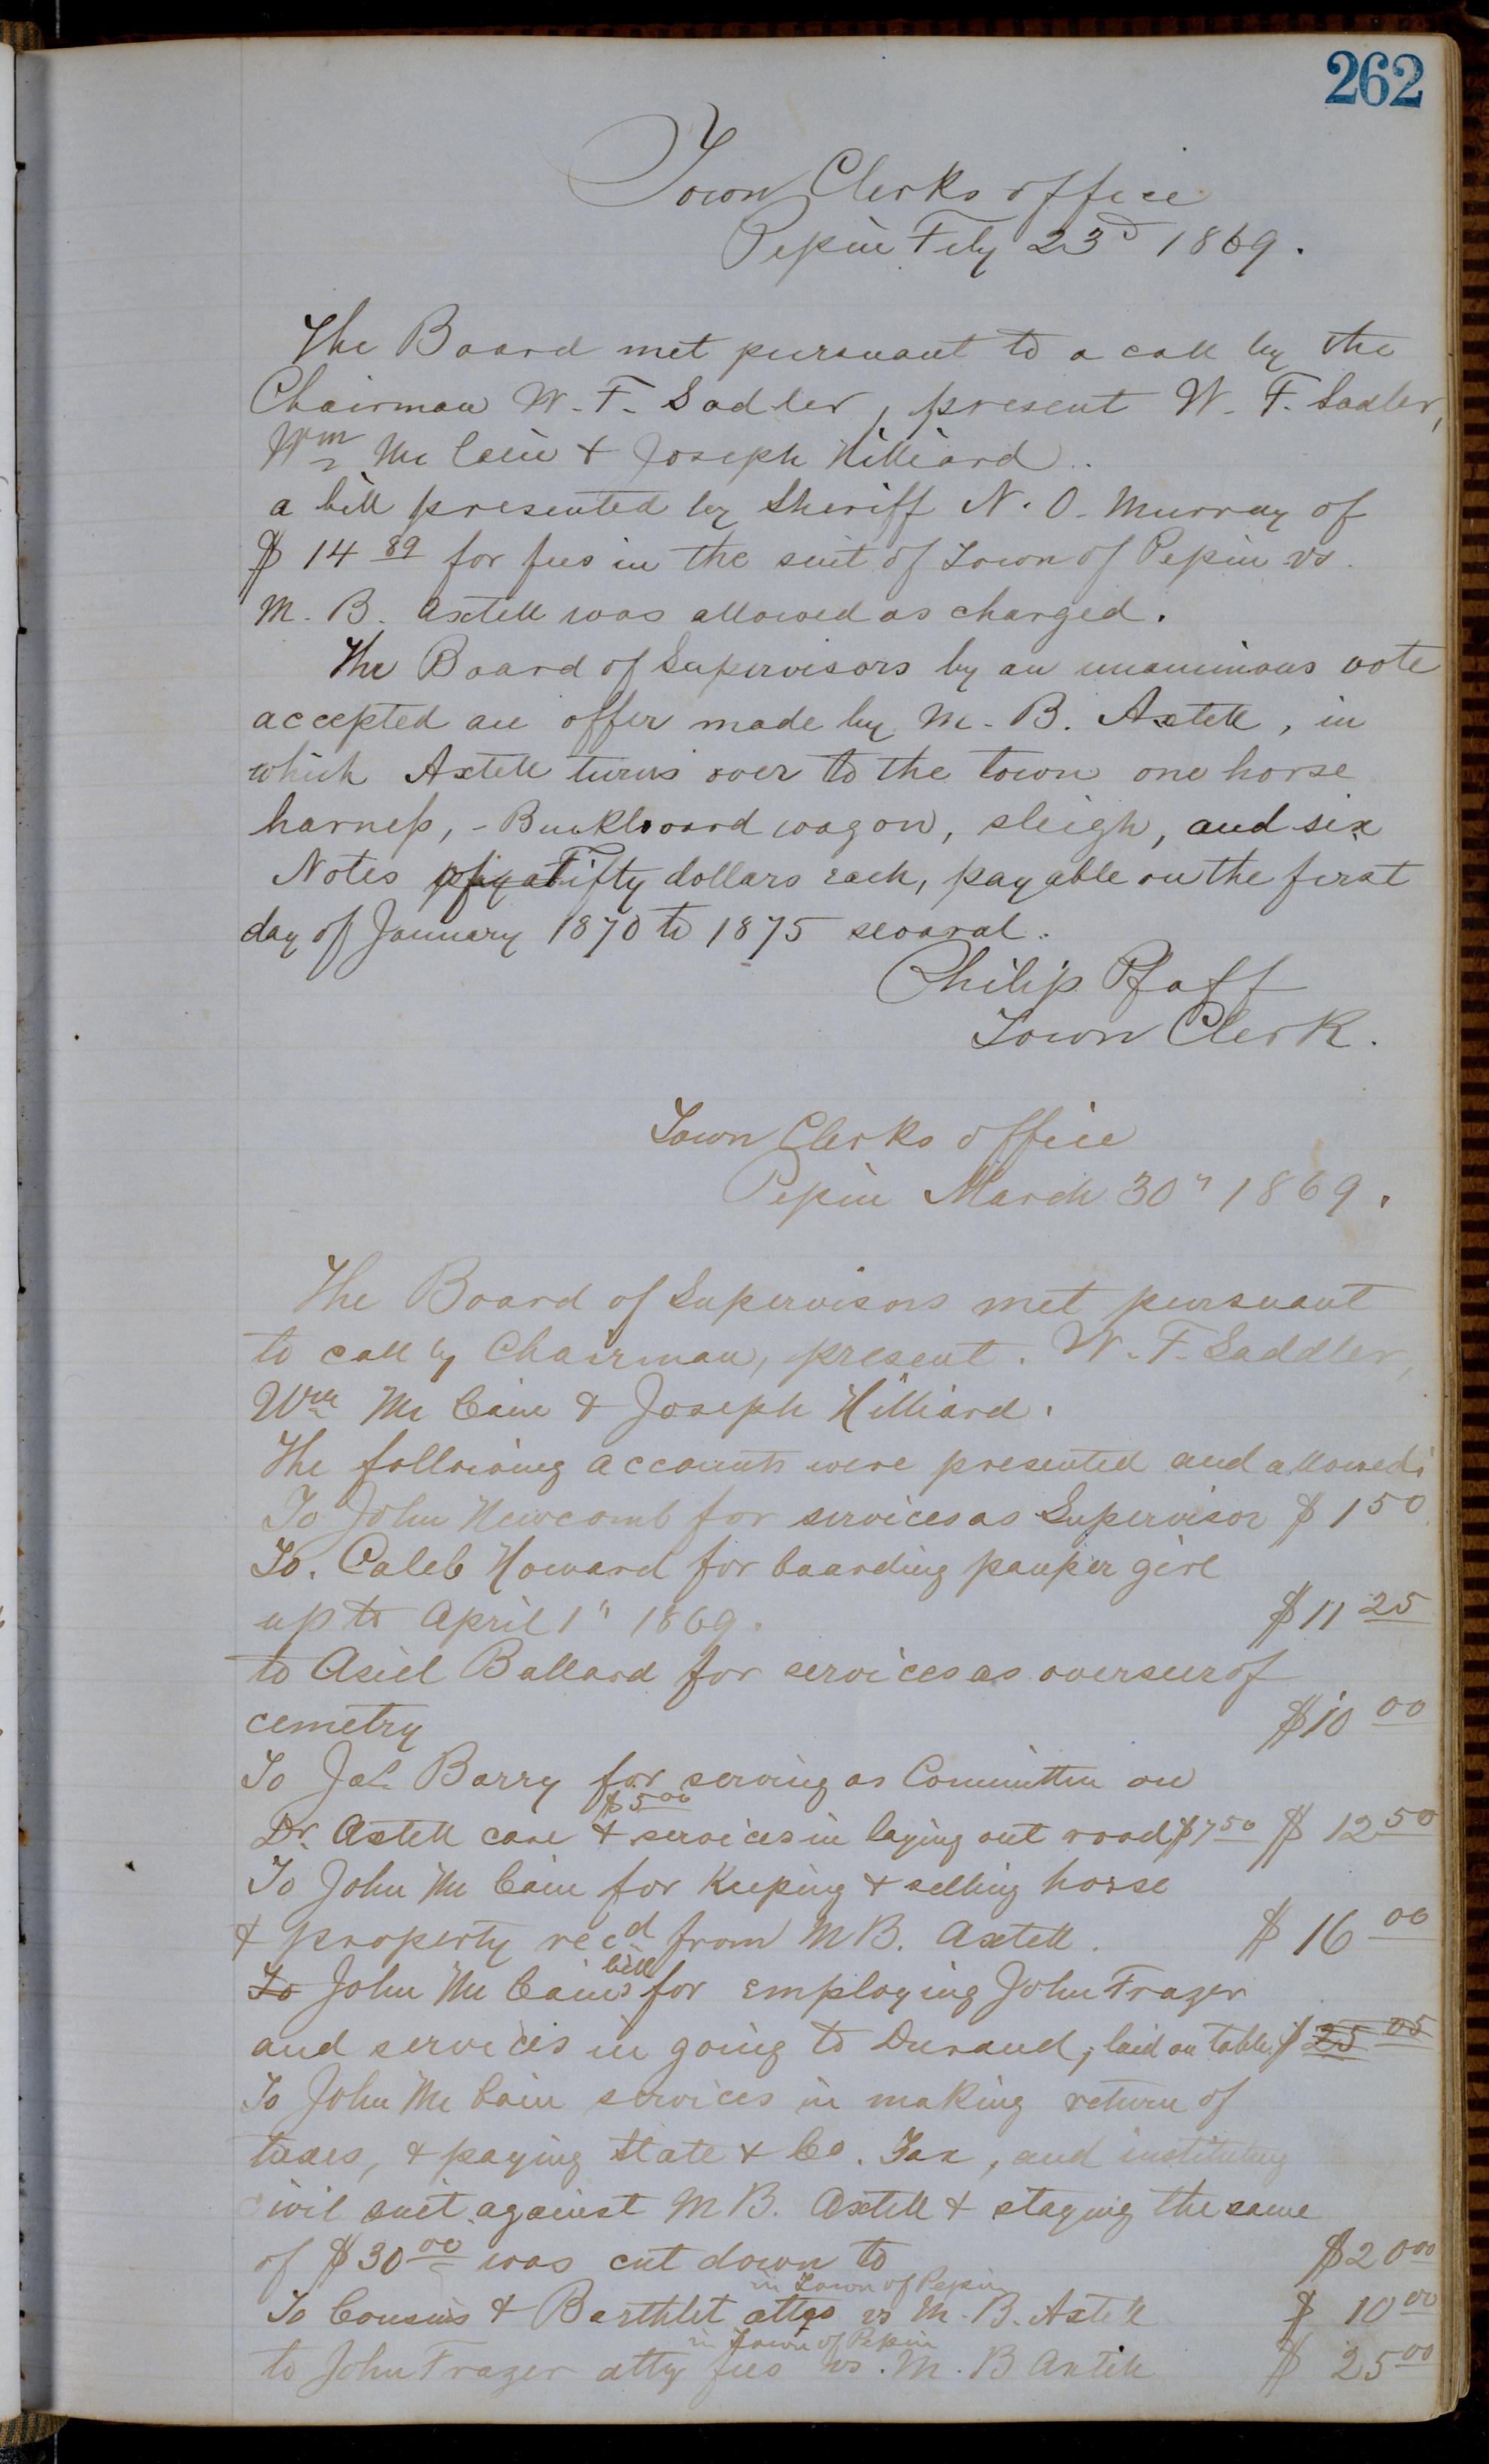 262
Town Clerks office
Pepin Feby 23d 1869.
The Board met pursuant to a call by the
Chairman W. F. Sadler, present W. F. Sadler,
Wm Mc Cain & Joseph Hilliard.
a bill presented by Sheriff N. O. Murray of
$ 14 89 for fees in the suit of Town of Pepin vs.
M. B. Axtell was allowed as charged.
The Board of Supervisors by an unanimous vote
accepted an offer made by M. B. Axtell, in
which Axtell turns over to the town one horse
harness, - Buckboard wagon, sleigh, and six
Notes Fifty dollars each, payable on the first
day of January 1870 to 1875 sevaral.
Philip Pfaff
Town Clerk.
Town Clerks office
Pepin March 30" 1869.
The Board of Supervisors met pursuant
to call by Chairman, present. W. F. Saddler,
Wm Mc Cain & Joseph Hilliard.
The following accounts were presented and allowed;
To John Newcomb for services as Supervisor $ 1 50
To. Caleb Howard for boarding pauper girl
up to April 1" 1869. $ 11 25
to Asiel Ballard for services as overseer of
cemetry $ 10 00
To Jas. Barry for serving as Committee on
$5 00
Dr. Axtell case & services in laying out road $7 50 $ 12 50
To John Mc Cain for Keeping & selling horse
& property recd from M B. Axtell. $ 16 00
bill
To John Mc Cains for employing John Frazer
and services in going to Durand, laid on table. $ 25 05
To John Mc Cain services in making return of
taxes, & paying State & Co. Tax, and instituting
civil suit against M B. Axtell & staying the same
of $ 30 00 was cut down to $ 20 00
in Town of Pepin
To Cousins & Barthlet attys vs M. B. Axtell $ 10 00
in Town of Pepin
to John Frazer atty fees vs. M. B Axtell $ 25 00